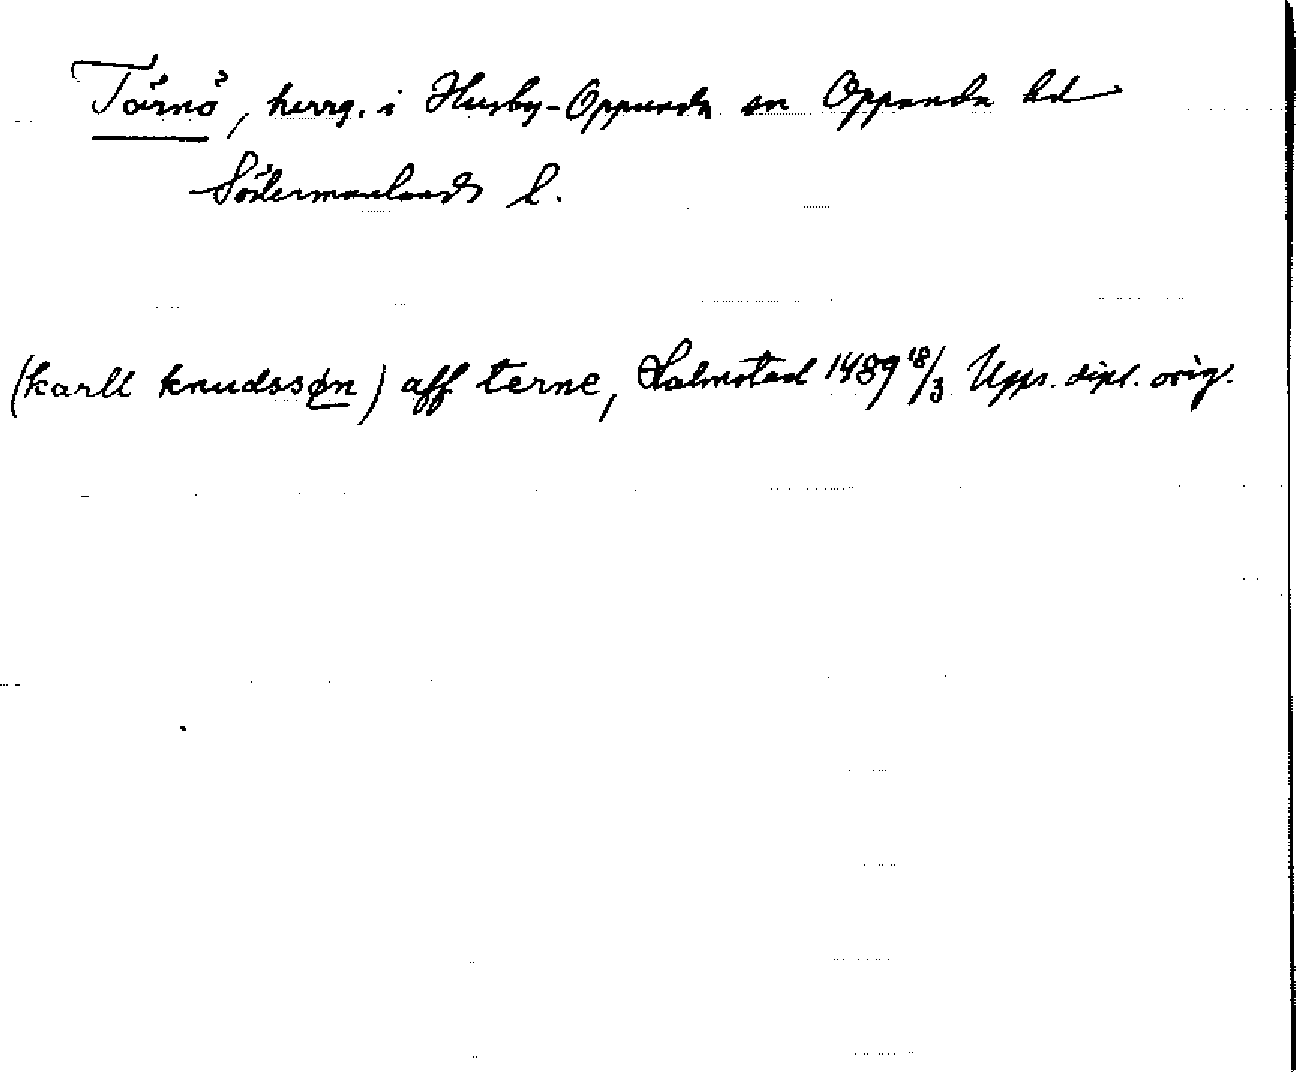 Tärnö, herrg. i Husby-Oppunda sn Oppunda hd
Södermanlands l.
(karll knudssøn) aff terne, Halmstad 1489 18/3 Upps. dipl. orig.